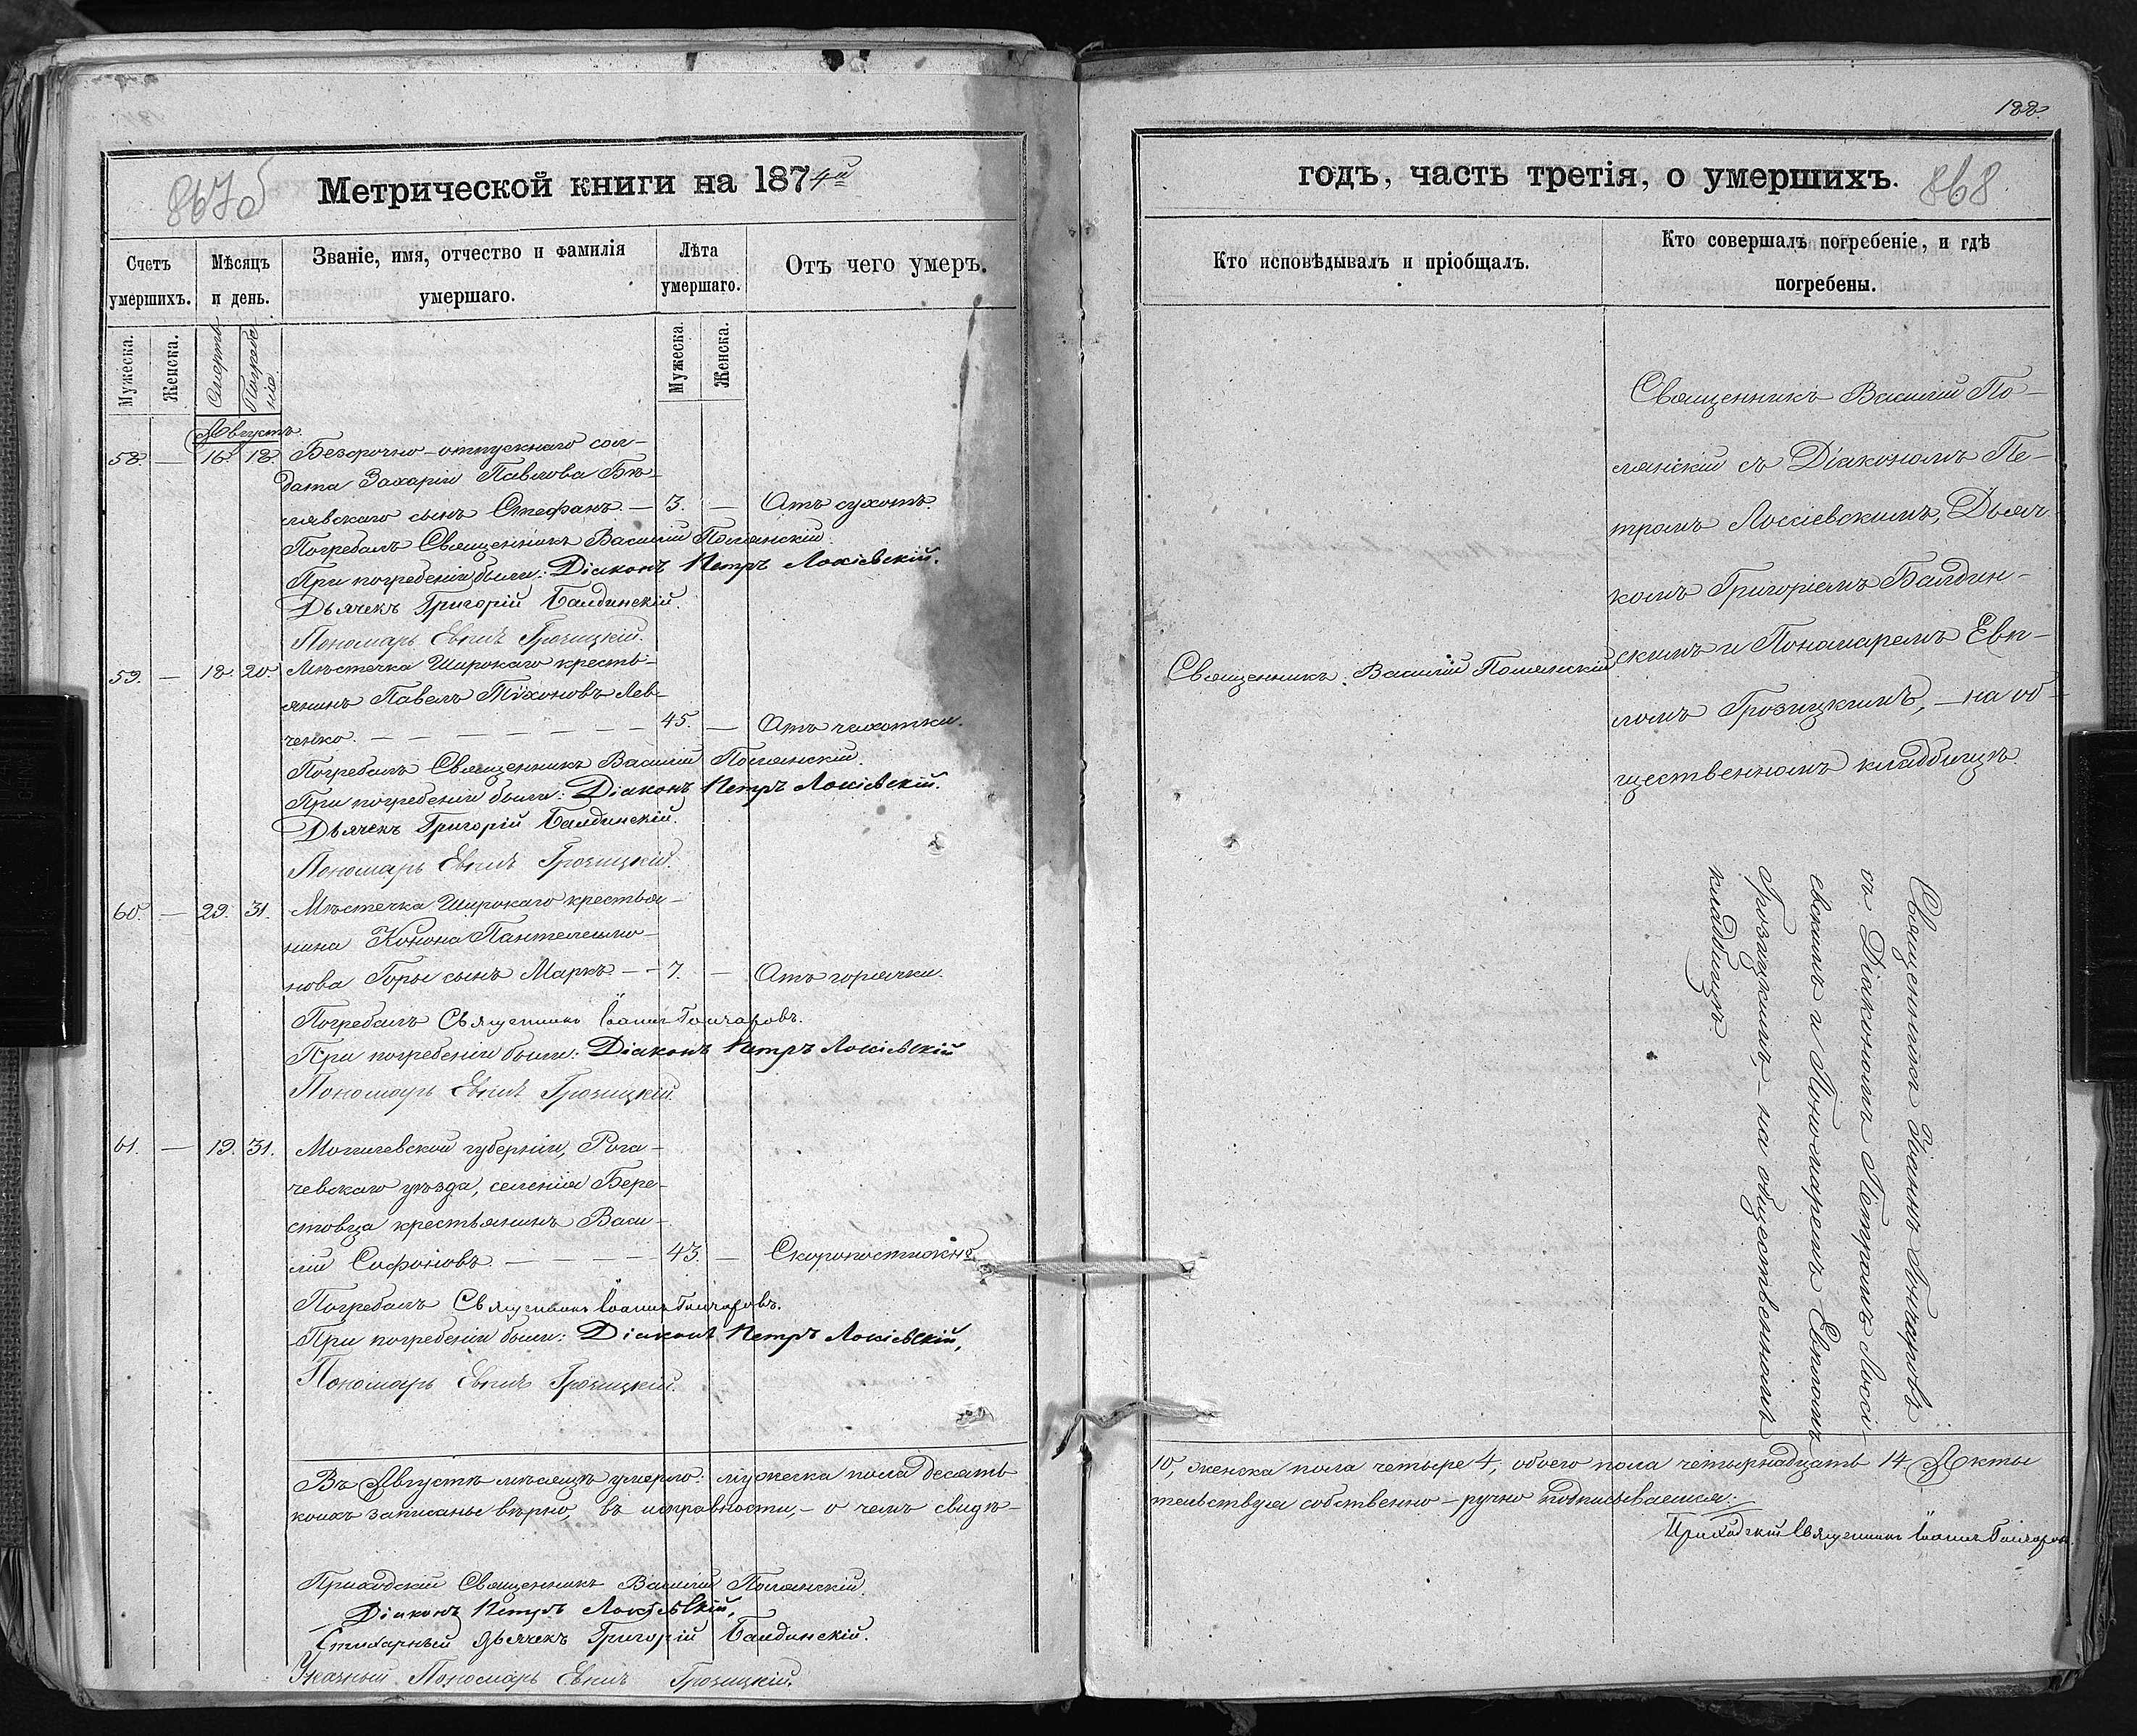 867об
Метрической книги на 1874й
Счетъ умершихъ.
Мѣсяцъ и день.
Званіе, имя, отчество и фамилія умершаго.
Лѣта умершаго.
Отъ чего умеръ.
Мужеска.
Женска.
Смерть
Погребенія.
Мужеска.
Женска.
Августъ.
58. — 16. 18. Безсрочно-отпускнаго сол-
дата Захарія Павлова Бѣ-
лявскаго сынъ Стефанъ. — 3. — Отъ сухотъ.
Погребалъ Священникъ Василій Полянскій.
При погребеніи были: Діаконъ Петръ Лосіевскій.
Дьячекъ Григорій Балдинскій.
Пономарь Евплъ Грозицкій.
59. — 18. 20. Мѣстечка Широкаго кресть-
янинъ Павелъ Тихоновъ Лев-
ченко. — 45. — Отъ чахотки.
Погребалъ Священникъ Василій Полянскій.
При погребеніи были: Діаконъ Петръ Лосіевскій.
Дьячекъ Григорій Балдинскій.
Пономарь Евплъ Грозицкій.
60. — 29. 31. Мѣстечка Широкаго крестья-
нина Конона Пантелеимо-
нова Горы сынъ Маркъ. — 7. — Отъ горячки.
Погребалъ Священникъ Іоаннъ Гончаровъ.
При погребеніи были: Діаконъ Петръ Лосіевскій
Пономарь Евплъ Грозицкій.
61. — 19. 31. Могилевской губерніи, Рога-
чевскаго уѣзда, селенія Бере-
стовца крестьянинъ Васи-
лій Софоновъ. — 43. — Скоропостижно.
Погребалъ Священникъ Іоаннъ Гончаровъ.
При погребеніи были: Діаконъ Петръ Лосіевскій,
Пономарь Евплъ Грозицкій.
Въ Августѣ мѣсяцѣ умерло: мужеска пола десять
коихъ записаны вѣрно, въ исправности, — о чемъ свидѣ-
Приходскій Священникъ Василій Полянскій.
Діаконъ Петръ Лосіевскій,
Стихарный Дьячекъ Григорій Балдинскій.
Указный Пономарь Евплъ Грозицкій.
188.
годъ, часть третія, о умершихъ.
868
Кто исповѣдывалъ и пріобщалъ.
Кто совершалъ погребеніе, и гдѣ погребены.
Священникъ Василій Полянскій.
Священникъ Василій По-
лянскій съ Діакономъ Пе-
тромъ Лосіевскимъ, Дьяч-
комъ Григоріемъ Балдин-
скимъ и Пономаремъ Евп-
ломъ Грозицкимъ, — на об-
щественномъ кладбищѣ
Священникъ Іоаннъ Гончаровъ
съ Діакономъ Петромъ Лосі-
евскимъ и Пономаремъ Евпломъ
Грозицкимъ, — на общественномъ
кладбищѣ
10, женска пола четыре 4, обоего пола четырнадцать 14 Акты
тельствуя собственно-ручно подписываемся:
Приходскій Священникъ Іоаннъ Гончаровъ.